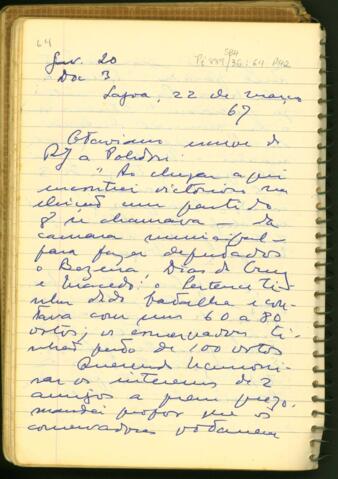 64
Gav. 20
Doc 3
Lagoa, 22 de março
67
Otaviano
RJ a Polidoro:
"Ao chegar aqui
encontrei victorioso na
eleição um partido
q' se chamava — da
camara municipal —
para fazer deputados
o Bezerra, Dias da Cruz
e Macedo: o
dado batalha e con-
tava com uns 60 a 80
votos; os conservadores ti-
nham perto de 100 votos
Querendo harmoni-
sar os interesses de 2
amigos a quem prezo,
mandei propor que os
conservadores votassem